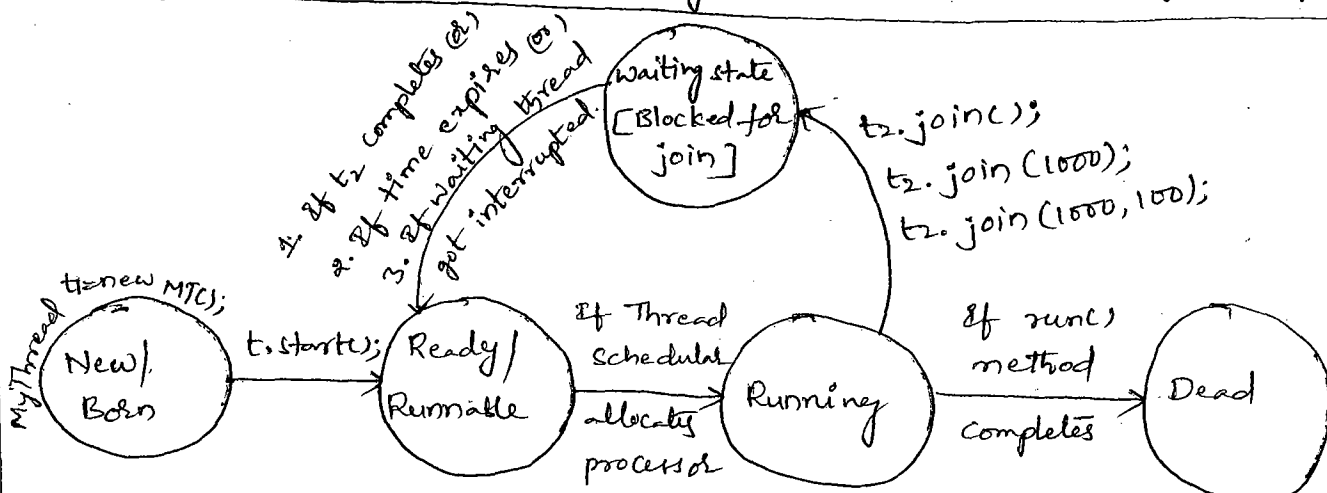 1. If t2 completes (or)
2. If time expires (or)
3. If waiting thread
got interrupted.
Waiting state
[Blocked for
join]
t2.join();
t2.join(1000);
t2.join(1000,100);
MyThread t1=new MT();
New/
Born
t1.start();
Ready/
Runnable
If Thread
schedular
allocates
processor
Running
If run()
method
completes
Dead